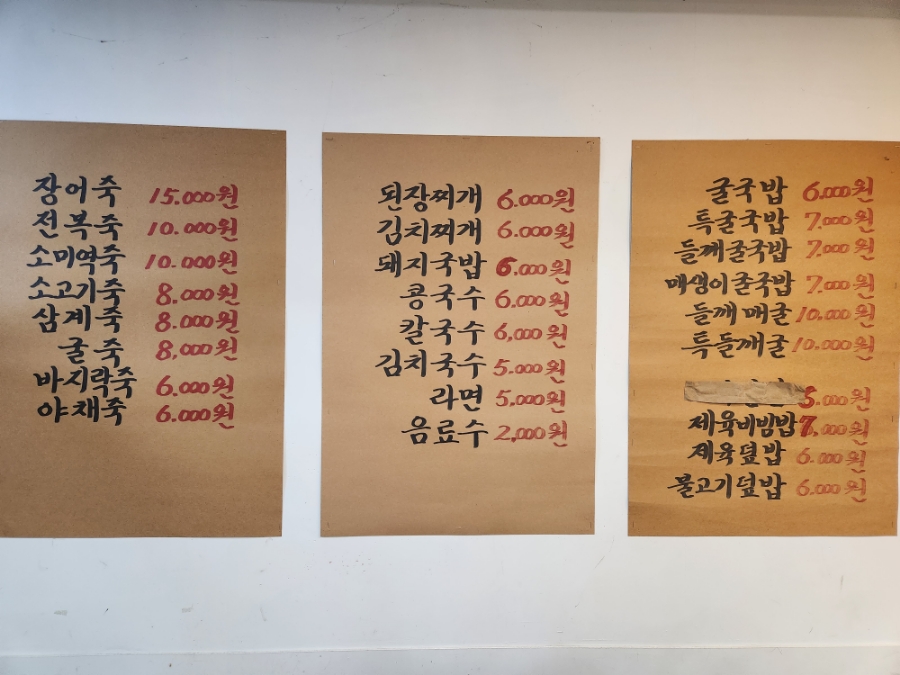 장어죽 15.000원
전복죽 10.000원
소미역죽 10.000원
소고기죽 8.000원
삼계죽 8.000원
굴죽 8,000원
바지락죽 6.000원
야채죽 6.000원
된장찌개 6.000원
김치찌개 6.000원
돼지국밥 6.000원
콩국수 6.000원
칼국수 6,000원
김치국수 5.000원
라면 5,000원
음료수 2,000원
굴국밥 6.000원
특굴국밥 7.000원
들깨굴국밥 7.000원
매생이굴국밥 7.000원
들깨매굴 10,000원
특들깨굴 10.000원
5.000원
제육비빔밥 7,000원
제육덮밥 6.000원
불고기덮밥 6.000원